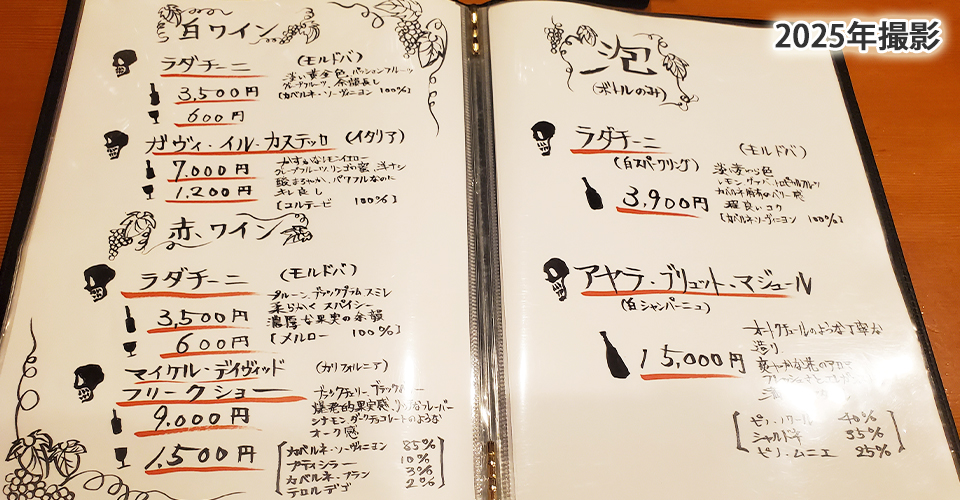 白ワイン
ラダチーニ (モルドバ)
3,500円
600円
淡い黄金色、パッションフルーツ
グレープフルーツ、余韻長し
[カベルネ・ソーヴィニヨン 100%]
ガヴィ・イル・カステッロ (イタリア)
7,000円
1,200円
かすかなレモンイエロー
グレープフルーツ、リンゴの蜜、
酸まろやか、パワフルなのに
キレ良し
[コルテーゼ 100%]
赤ワイン
ラダチーニ (モルドバ)
3,500円
600円
プルーン、ブラックプラム、スミレ
柔らかく スパイシー
濃厚な果実の余韻
[メルロー 100%]
マイケル・デイヴィッド
フリークショー
(カリフォルニア)
9,000円
1,500円
ブラックチェリー、ブラック
果実感、リッチなフレーバー
シナモン、ダークチョコレートのような
オーク感
カベルネ・ソーヴィニヨン 85%
プティシラー 10%
カベルネ・フラン 3%
テロルデゴ 2%
2025年撮影
泡
(ボトルのみ)
ラダチーニ (モルドバ)
(白スパークリング)
3,900円
レモン、グァバ、トロピカルフルーツ
カベルネ特有のベリー感
程良いコク
[カベルネ・ソーヴィニヨン 100%]
アヤラ・ブリュット・マジュール
(白シャンパーニュ)
15,000円
オートクチュールのような丁寧な
造り
爽やかな花のアロマ
ピノ・ノワール 40%
シャルドネ 35%
ピノ・ムニエ 25%